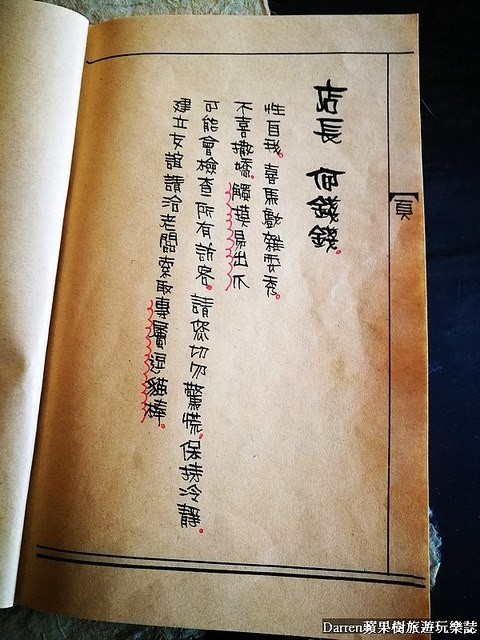 【頁
店長 何錢錢。
性自我。喜馬戲雜耍秀。
不喜撒嬌。觸摸易出爪
可能會檢查所有訪客。請您切勿驚慌。保持冷靜。
建立友誼 請洽老闆索取專屬逗貓棒。
Darren蘋果樹旅遊玩樂誌